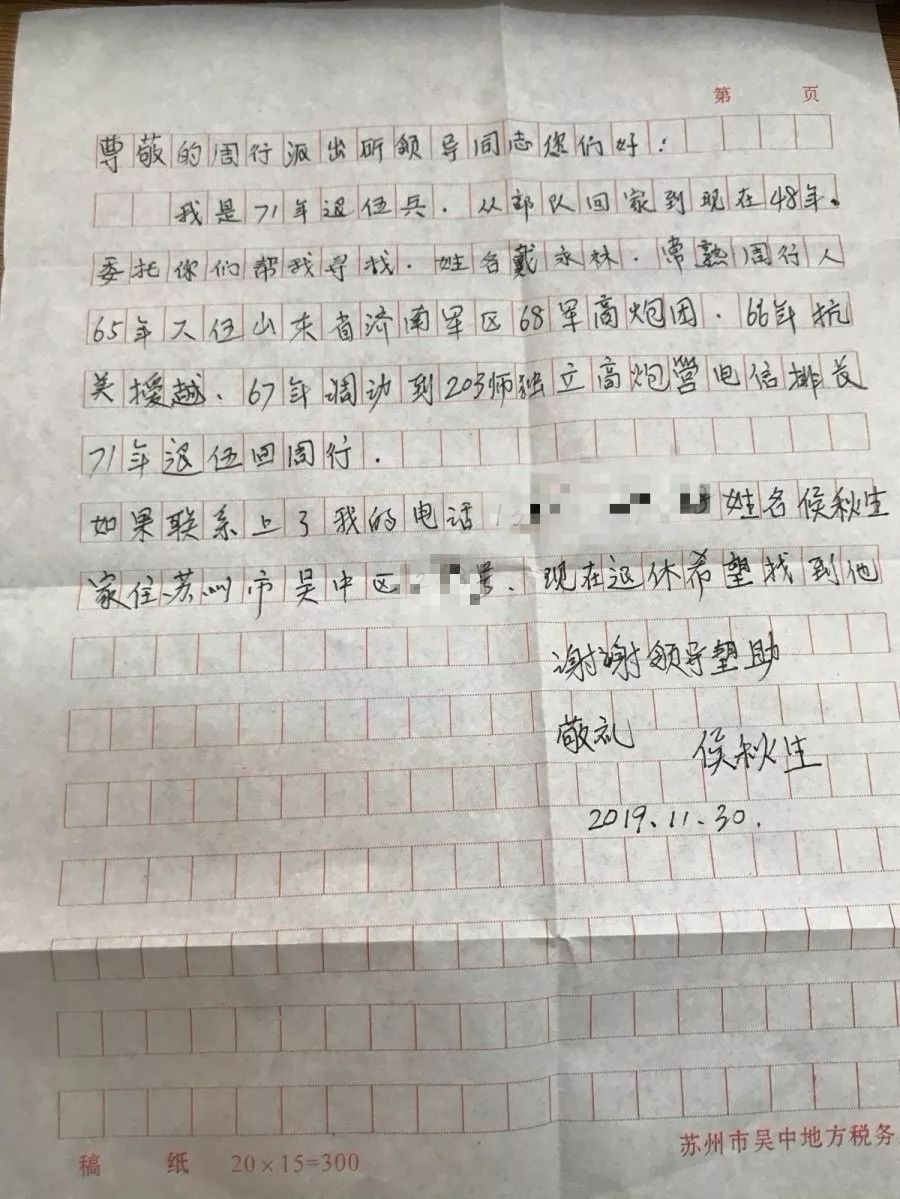 第 页
尊敬的周行派出所领导同志您们好：
我是71年退伍兵．从部队回家到现在48年。
委托你们帮我寻找．姓名戴永林．常熟周行人
65年入伍山东省济南军区68军高炮团．66年抗
美援越、67年调动到203师独立高炮营电信排长
71年退伍回周行．
如果联系上了我的电话 姓名侯秋生
家住苏州市吴中区 号、现在退休希望找到他
谢谢领导帮助
敬礼 侯秋生
2019.11.30.
稿 纸 20×15=300
苏州市吴中地方税务